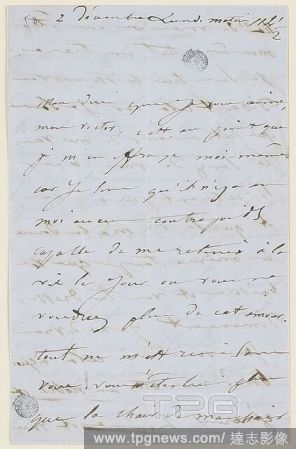 2 Décembre Lundi matin 11h ½
Mon Dieu que je vous aime
mon Victor, c'est au point que
je m'en effraye moi-même
car je sens qu'il n'y a en
moi aucun contrepoids
capable de me retenir à la
vie le jour où vous ne
voudrez plus de cet amour.
tout ne m'est rien
vous, vous êtes plus
que la chair de ma chair
TPG
www.tpgnews.com / 達志影像